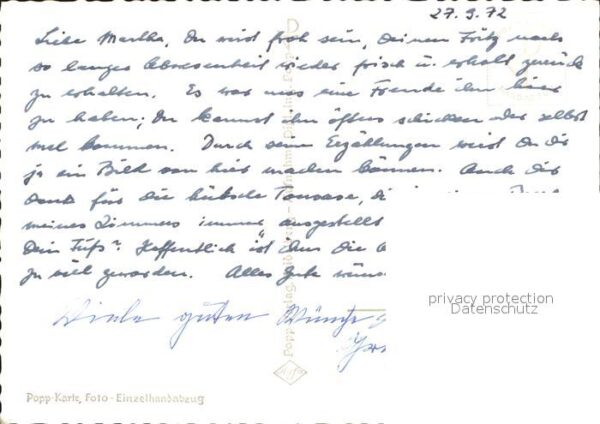 27.9.72
Liebe Martha, Du wirst froh sein, Deinen Fritz nach
so langer Abwesenheit wieder frisch u. erholt zurück
zu erhalten. Es war uns eine Freude ihn hier
zu haben; Du kannst ihn öfters schicken oder selbst
mal kommen. Durch seine Erzählungen wirst Du dir
ja ein Bild von hier machen können. Auch Dir
Dank für die hübsche
meines Zimmers immer ausgestellt
Dein Fuß? Hoffentlich ist ihm die
zu viel geworden. Alles Gute
Viele guten Wünsche
privacy protection
Datenschutz
Popp-Karte, Foto-Einzelhandabzug